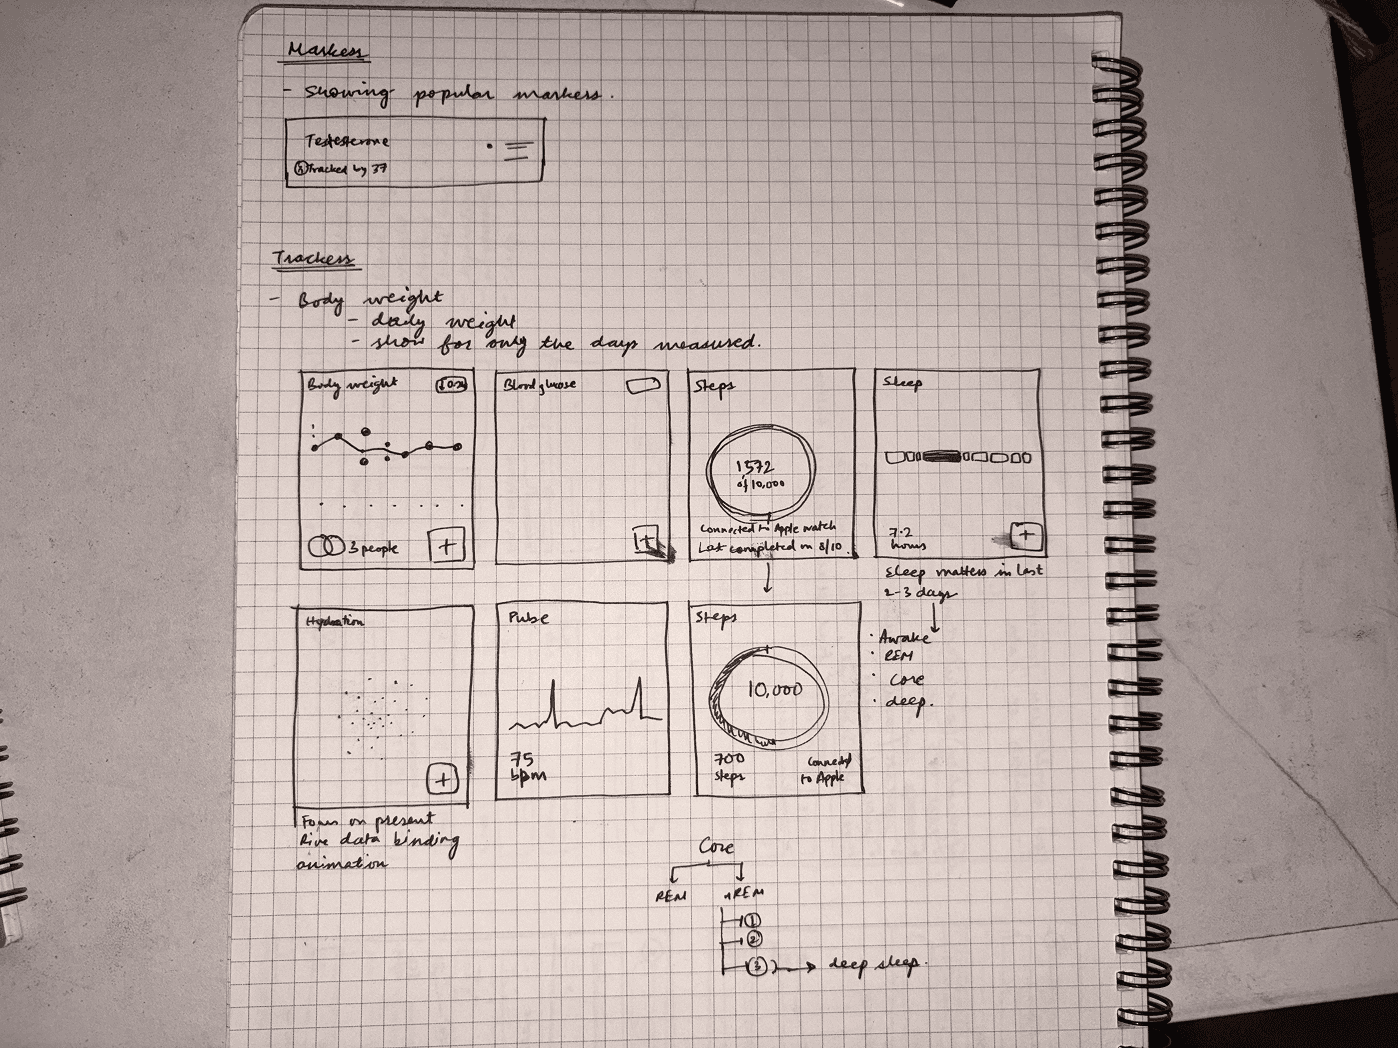 Markers
- Showing popular markers.
Testesterone
Tracked by 37
Trackers
- Body weight
- daily weight
- show for only the days measured.
Body weight
3 people
+
Blood glucose
+
Steps
1572
of 10,000
Connected to Apple watch
Last completed on 8/10.
Sleep
7.2
hours
+
Sleep matters in last
2-3 days
· Awake
· REM
· Core
· deep.
Hydration
+
Focus on present
Rive data binding
animation
Pulse
75
bpm
Steps
10,000
700
steps
Connected
to Apple
Core
REM
nREM
1
2
3
deep sleep.